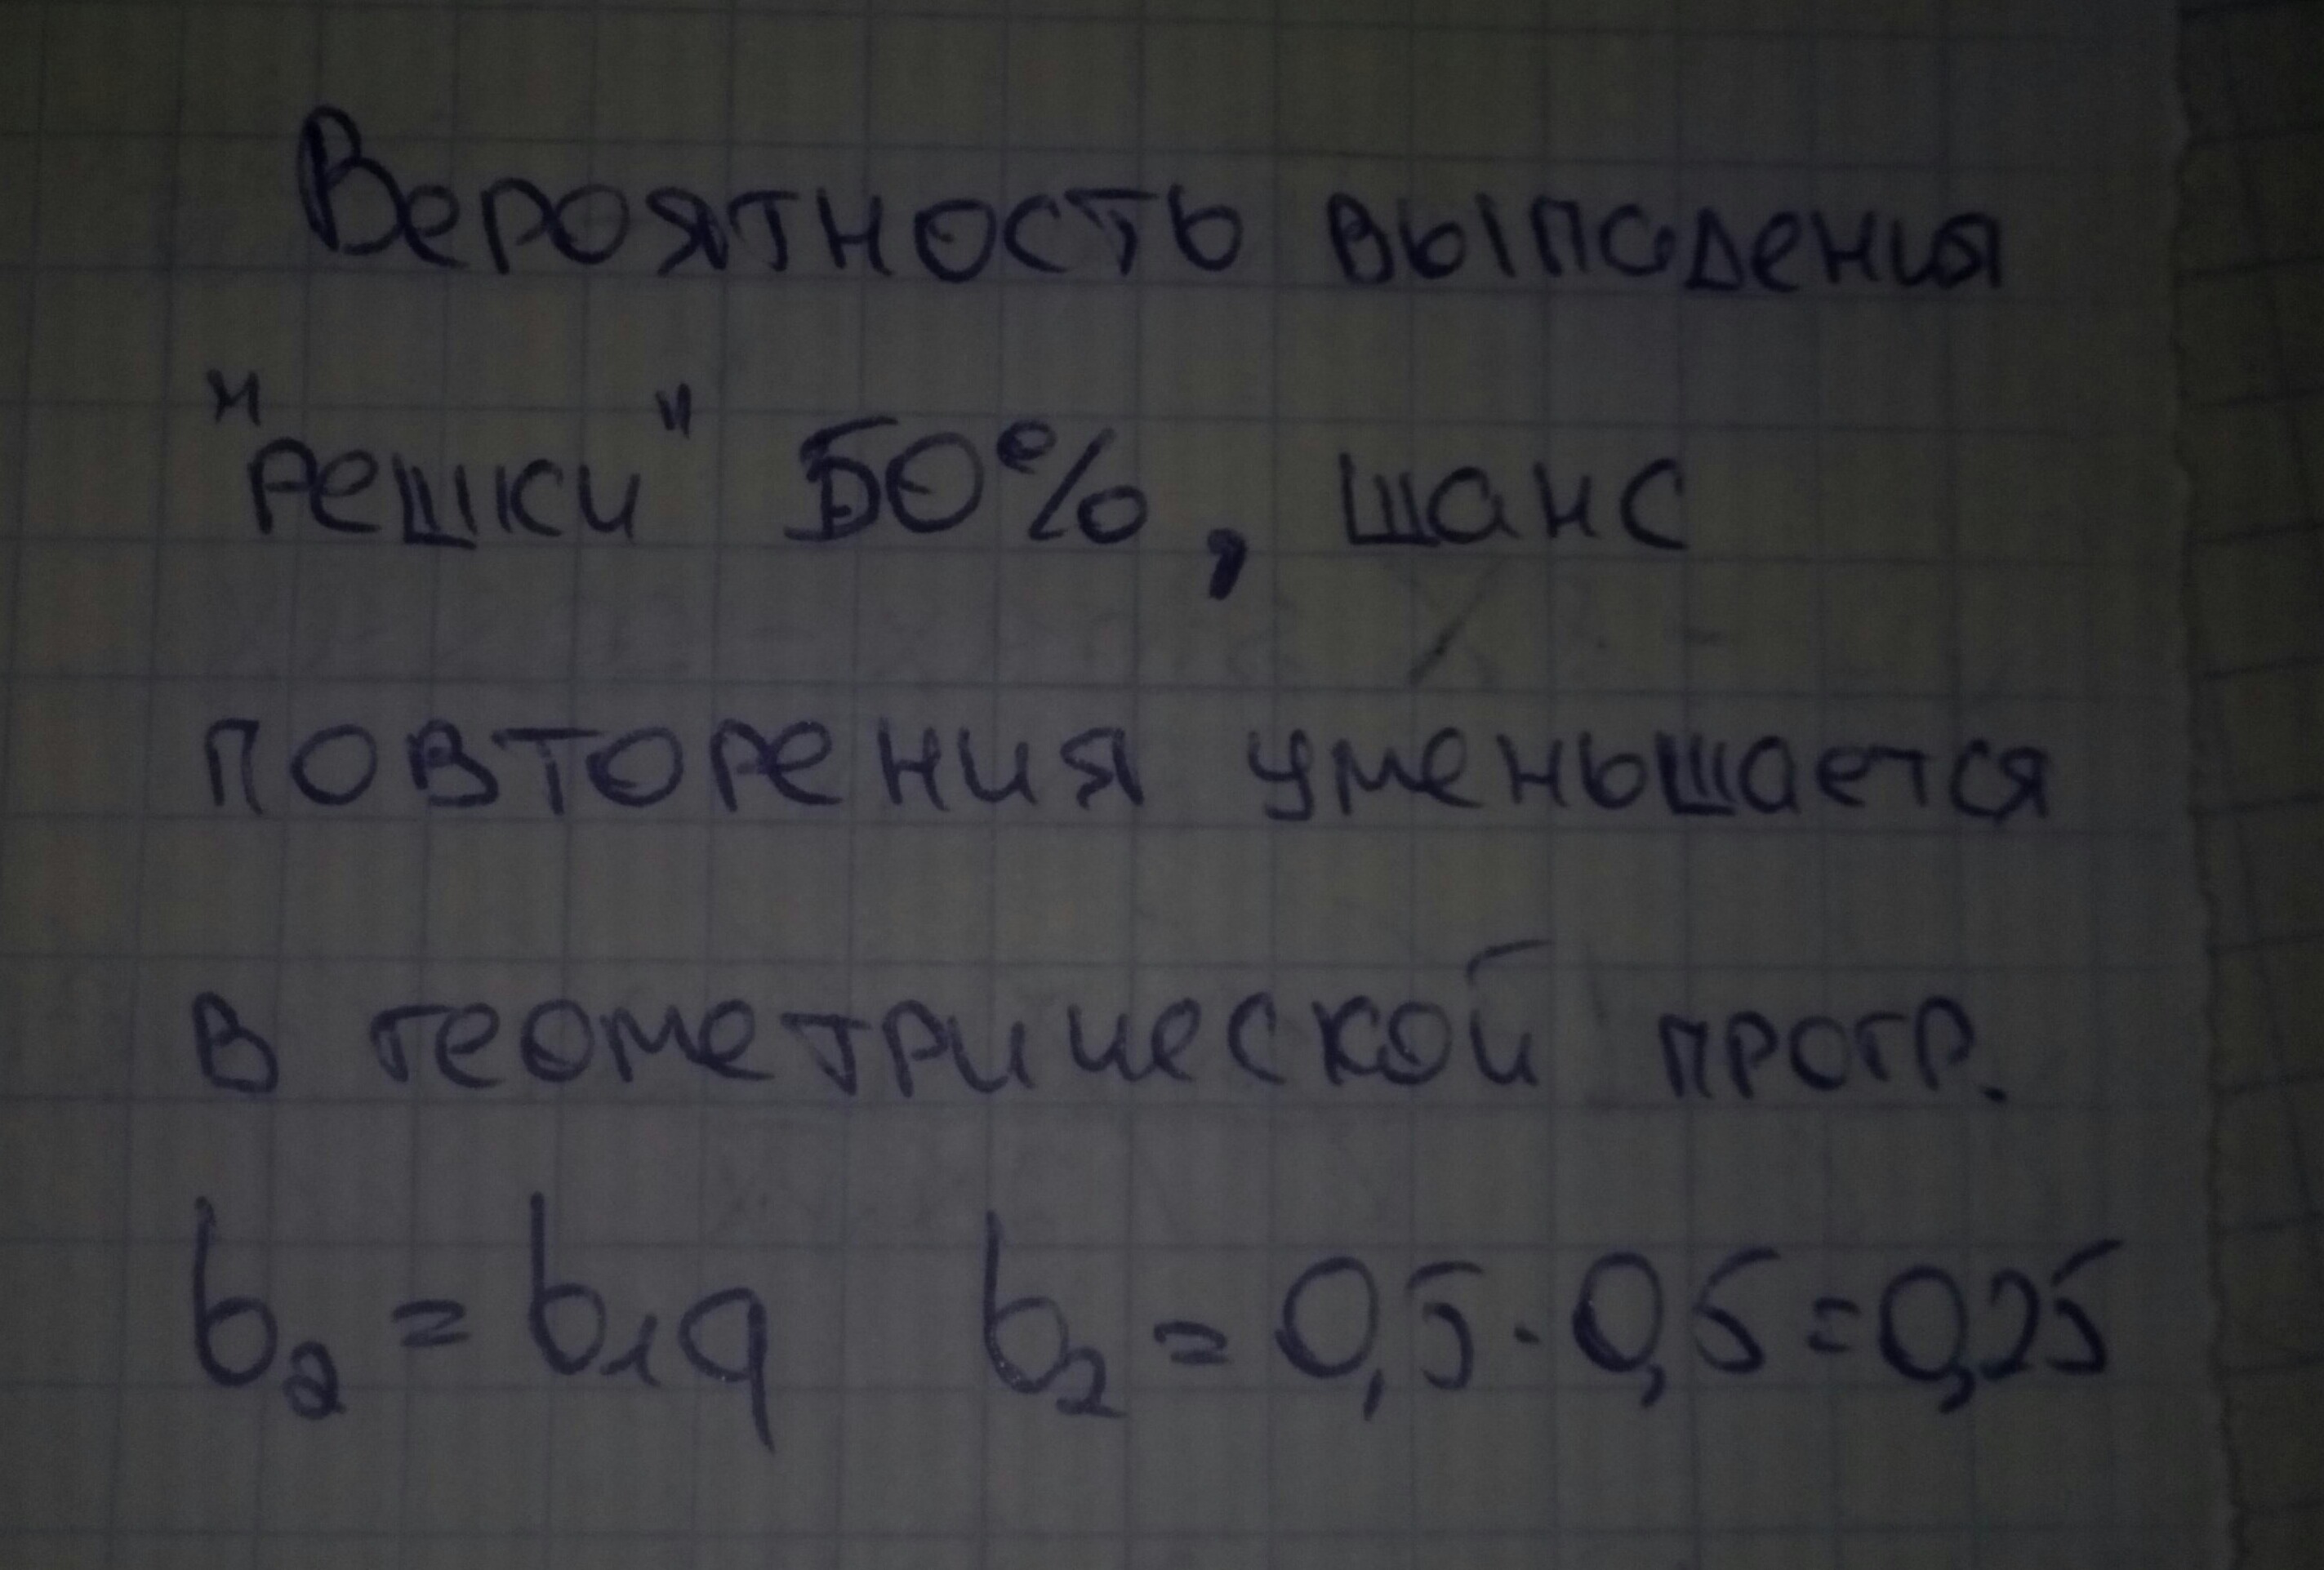 Вероятность выпадения
"решки" 50%, шанс
повторения уменьшается
в геометрической прогр.
b₂ = b₁q b₂ = 0,5 · 0,5 = 0,25